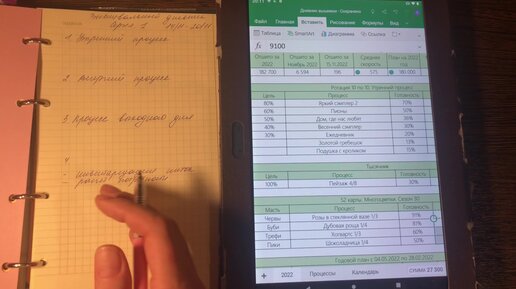 1 Утренний процесс
2 Вечерний процесс
3 Процесс выходного дня
4
20:11
Дневник вышивки - Сохранено
Файл Главная Вставить Рисование Формулы
Таблица SmartArt Диаграмма Ссылка
9100
Отшито за 2022 Отшито за Ноябрь 2022 Отшито за 15.11.2022 Средняя скорость План на 2022 год
182 700 6 594 196 573 180 000
Ротация 10 по 10. Утренний процесс
Цель Процесс Готовность
80% Яркий сэмплер 2 70%
60% Пионы 50%
50% Дом, где нас любят 36%
40% Весенний сэмплер 30%
30% Ежедневник 20%
Золотой гребешок 13%
Подушка с кроликом 15%
Тысячник
Цель Процесс Готовность
100% Пейзаж 4/8 30%
52 карты. Многоцветка. Сезон 30
Масть Процесс Готовность
Червы Розы в стеклянной вазе 1/3 91%
Буби Дубовая роща 1/4 81%
Трефи Хогвартс 1/3 60%
Пики Шоколадница 1/4 50%
Годовой план с 04.05.2022 по 28.02.2022
2022 Процессы Календарь
СУММА 27 300